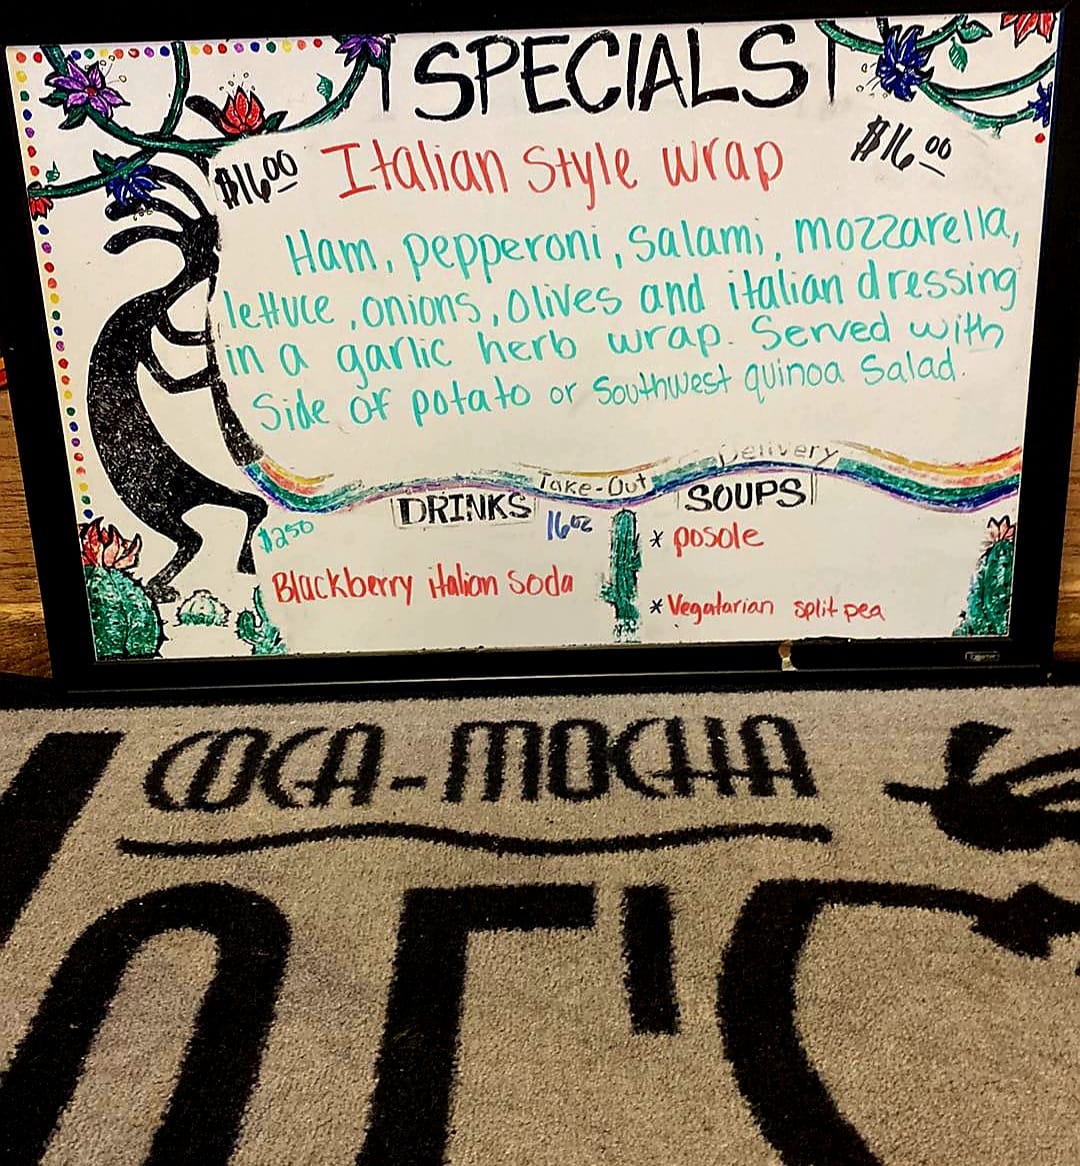 SPECIALS
$16.00 Italian Style wrap $16.00
Ham, pepperoni, Salami, mozzarella,
lettuce, onions, olives and italian dressing
in a garlic herb wrap. Served with
Side of potato or Southwest quinoa Salad.
Take-Out Delivery
DRINKS 16oz
$2.50
Blackberry italian Soda
SOUPS
* posole
* Vegatarian split pea
COCA-MOCHA